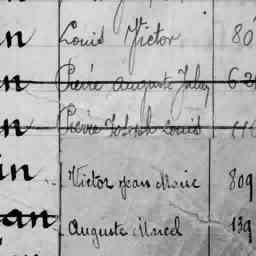 in Louis Victor 80
in Pierre Auguste Jules 6 2
in Pierre Joseph Louis 11
in Victor Jean Marie 809
an Auguste Marcel 139